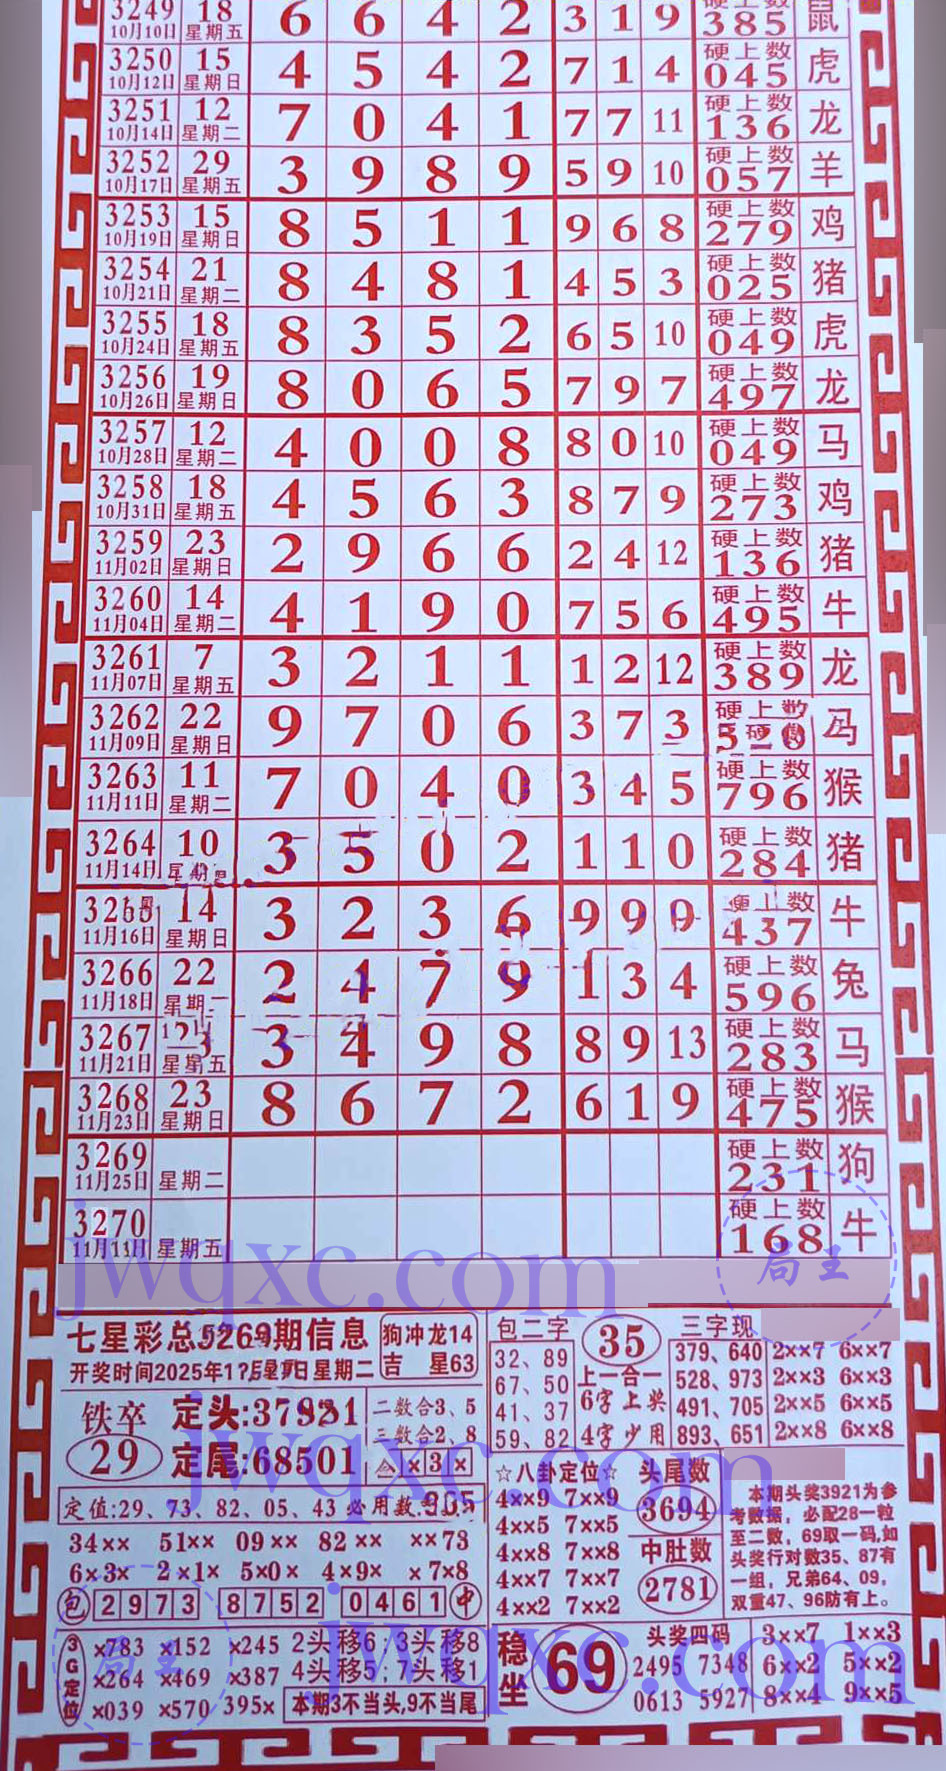 3249 18 6 6 4 2 3 1 9 硬上数 385 鼠
10月10日 星期五
3250 15 4 5 4 2 7 1 4 硬上数 045 虎
10月12日 星期日
3251 12 7 0 4 1 7 7 11 硬上数 136 龙
10月14日 星期二
3252 29 3 9 8 9 5 9 10 硬上数 057 羊
10月17日 星期五
3253 15 8 5 1 1 9 6 8 硬上数 279 鸡
10月19日 星期日
3254 21 8 4 8 1 4 5 3 硬上数 025 猪
10月21日 星期二
3255 18 8 3 5 2 6 5 10 硬上数 049 虎
10月24日 星期五
3256 19 8 0 6 5 7 9 7 硬上数 497 龙
10月26日 星期日
3257 12 4 0 0 8 8 0 10 硬上数 049 马
10月28日 星期二
3258 18 4 5 6 3 8 7 9 硬上数 273 鸡
10月31日 星期五
3259 23 2 9 6 6 2 4 12 硬上数 136 猪
11月02日 星期日
3260 14 4 1 9 0 7 5 6 硬上数 495 牛
11月04日 星期二
3261 7 3 2 1 1 1 2 12 硬上数 389 龙
11月07日 星期五
3262 22 9 7 0 6 3 7 3 硬上数 马
11月09日 星期日
3263 11 7 0 4 0 3 4 5 硬上数 796 猴
11月11日 星期二
3264 10 3 5 0 2 1 1 0 硬上数 284 猪
11月14日 星期
3265 14 3 2 3 6 9 9 9 硬上数 437 牛
11月16日 星期日
3266 22 2 4 7 9 1 3 4 硬上数 596 兔
11月18日 星期二
3267 23 3 4 9 8 8 9 13 硬上数 283 马
11月21日 星期五
3268 23 8 6 7 2 6 1 9 硬上数 475 猴
11月23日 星期日
3269 硬上数 231 狗
11月25日 星期二
3270 硬上数 168 牛
11月11日 星期五
jwqxc.com
局王
七星彩总3269期信息
开奖时间2025年1 日 星期二
狗冲龙14
吉 星63
铁卒 29
定头:37
定尾:68501
二数合3、5
三数合2、8
合×3×
定值:29、73、82、05、43 必用数:
34×× 51×× 09×× 82×× ××73
6×3× 2×1× 5×0× 4×9× ×7×8
包 2973 8752 0461 中
3G定位
×783 ×152 ×245
×264 ×469 ×387
×039 ×570 395×
2头移6;3头移8
4头移5;7头移1
本期3不当头,9不当尾
包二字
32、89
67、50
41、37
59、82
35
上一合一
6字上奖
4字少用
三字现
379、640
528、973
491、705
893、651
2××7 6××7
2××3 6××3
2××5 6××5
2××8 6××8
☆八卦定位☆
4××9 7××9
4××5 7××5
4××8 7××8
4××7 7××7
4××2 7××2
头尾数
3694
中肚数
2781
本期头奖3921为参
考数据，必配28一粒
至二数，69取一码,如
头奖行对数35、87有
一组，兄弟64、09，
双重47、96防有上。
稳坐
69
头奖四码
2495 7348
0613 5927
3××7 1××3
6××2 5××2
8××4 9××5
jwqxc.com
jwqxc.com
局王